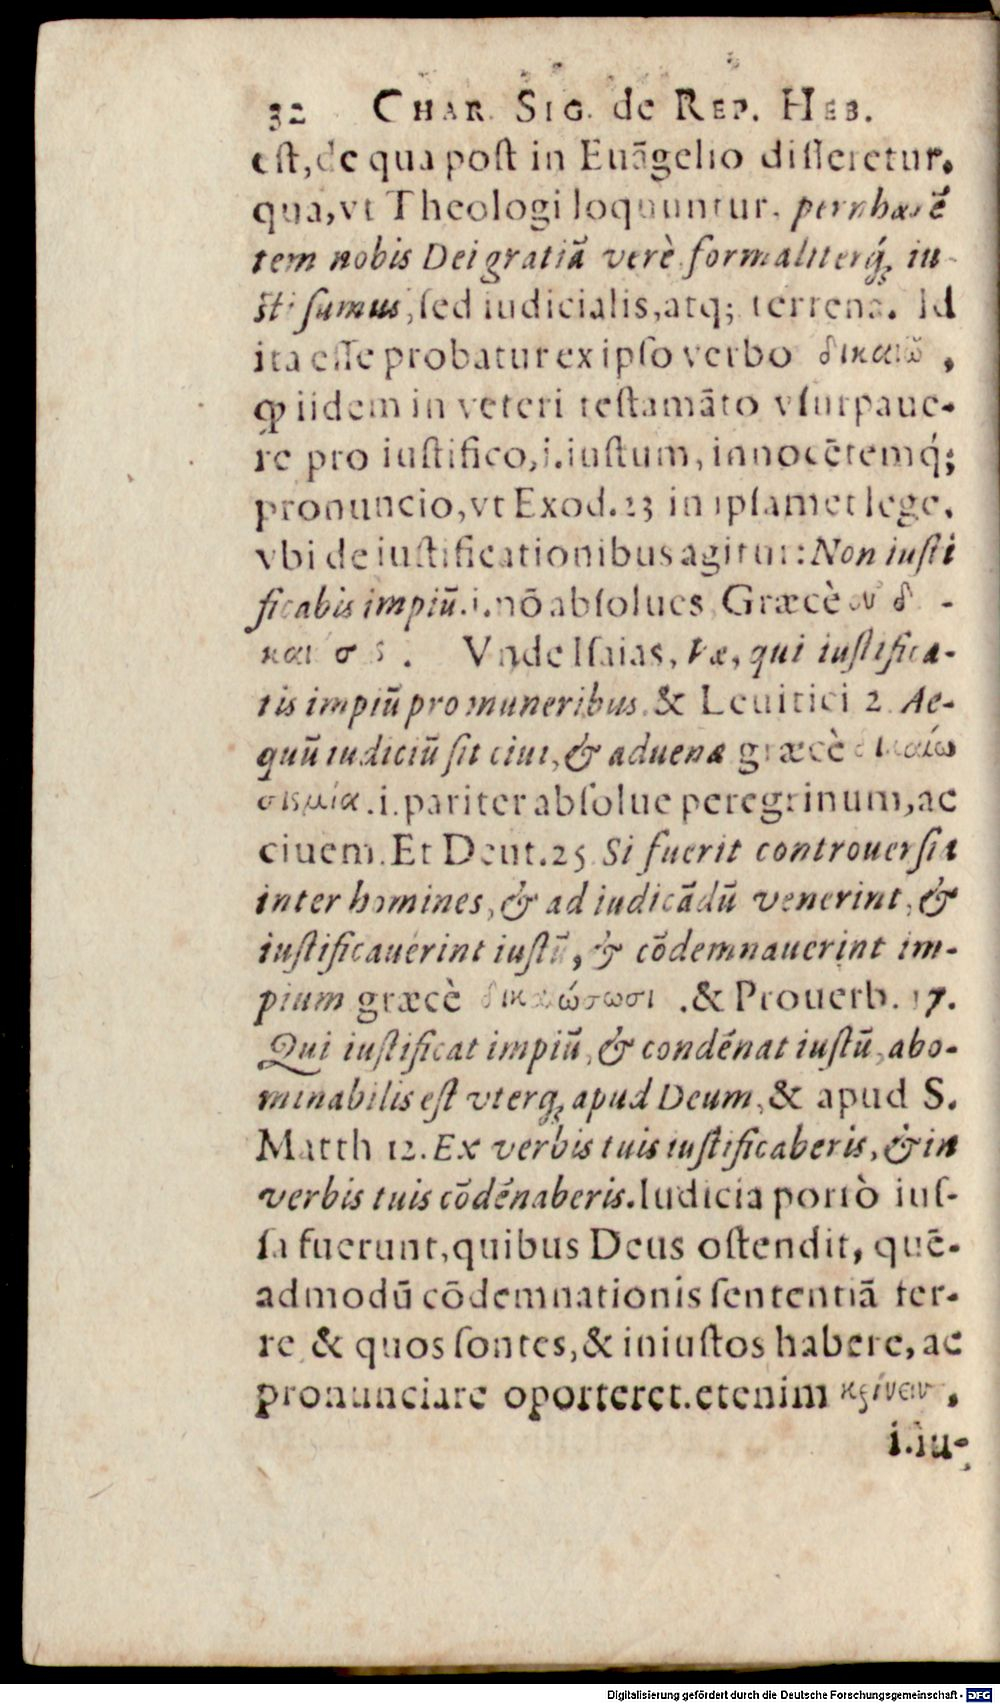 32 CHAR. SIG. de REP. HEB.
est, de qua post in Euãgelio dissieretur.
qua, vt Theologi loquuntur, per inhærẽ
tem nobis Dei gratiã verè formaliterq́ȝ iu-
sti sumus, sed iudicialis, atq; terrena. Id
ita esse probatur ex ipso verbo δικαιῶ,
ꝙ iidem in veteri testamãto vsurpaue-
re pro iustifico, i. iustum, innocẽtemq́;
pronuncio, vt Exod. 23 in ipsamet lege,
vbi de iustificationibus agitur: Non iusti
ficabis impiũ. i. nõ absolues, Græcè οὐ δ -
και σ ς. Vnde Isaias, Væ, qui iustifica-
tis impiũ pro muneribus. & Leuitici 2. Ae-
quũ iudiciũ sit ciui, & aduenæ græcè δικαίω
. i. pariter absolue peregrinum, ac
ciuem. Et Deut. 25 Si fuerit controuersia
inter homines, & ad iudicãdũ venerint, &
iustificauerint iustũ, & cõdemnauerint im-
pium græcè δικαιώσωσι. & Prouerb. 17.
Qui iustificat impiũ, & condẽnat iustũ, abo-
minabilis est vterqȝ apud Deum, & apud S.
Matth 12. Ex verbis tuis iustificaberis, & in
verbis tuis cõdẽnaberis. Iudicia porrò ius-
sa fuerunt, quibus Deus ostendit, quẽ-
admodũ cõdemnationis sententiã fer-
re & quos sontes, & iniustos habere, ac
pronunciare oporteret. etenim κρίνειν,
i. iu-
Digitalisierung gefördert durch die Deutsche Forschungsgemeinschaft - DFG